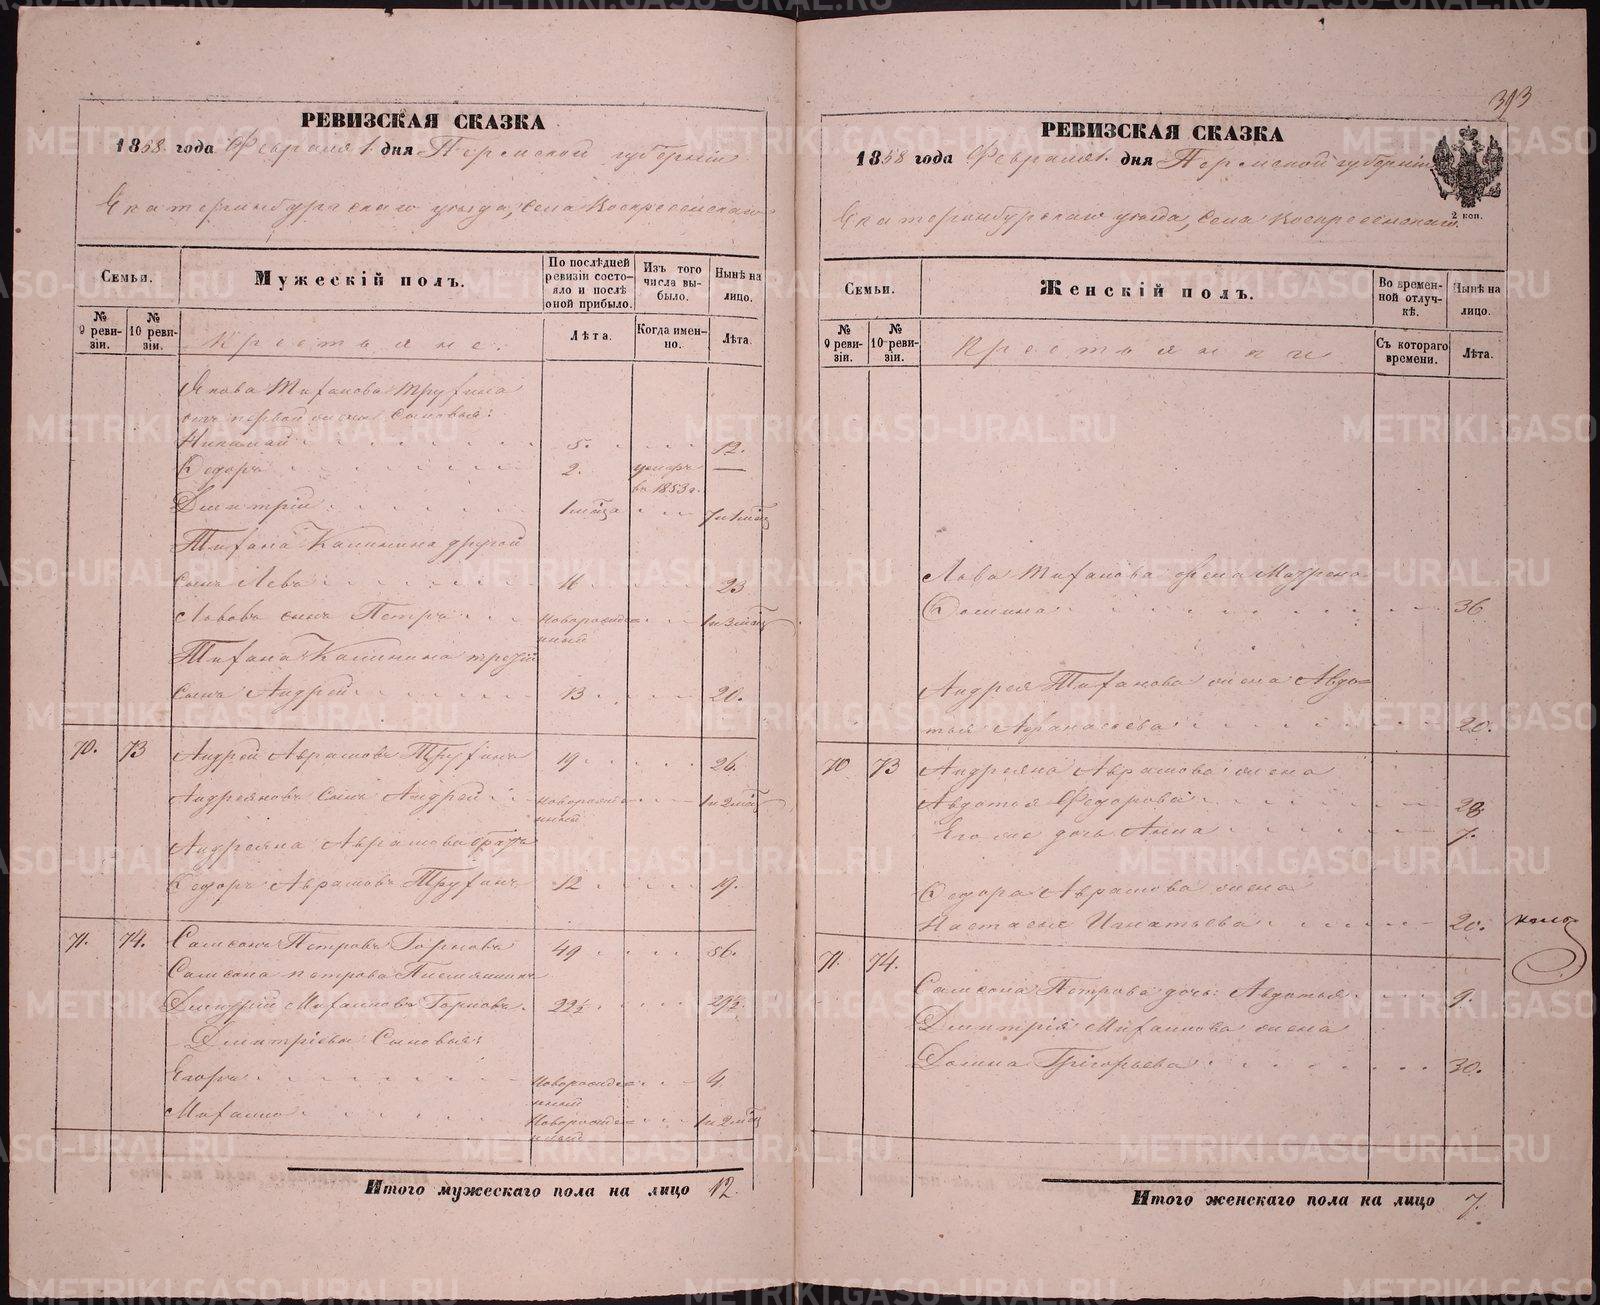 РЕВИЗСКАЯ СКАЗКА
1858 года Февраля 1 дня Пермской губернiи
Екатеринбургскаго уезда, села Воскресенскаго
Семьи.
№ 9 ревизiи.
№ 10 ревизiи.
Мужескiй полъ.
По послѣдней ревизiи состояло и послѣ оной прибыло.
Изъ того числа выбыло.
Нынѣ на лицо.
Крестьяне.
Лѣта.
Когда именно.
Лѣта.
Якова Тифанова Труфина
отъ первой жены сыновья:
Николай 5. 12.
Федоръ 2. умеръ въ 1853 г. —
Дмитрiй 1 мѣсяца 7 и 1 мѣс
Тифана Калинина другой
сынъ Левъ 16 23
Львовъ сынъ Петръ Новорожденный 1 и 3 мѣс
Тифана Калинина третiй
сынъ Андрей 13 20.
70. 73 Андрей Аврамовъ Труфинъ 19 26.
Андреяновъ сынъ Андрей Новорожденный 1 и 2 мѣс
Андреяна Аврамова братъ
Федоръ Аврамовъ Труфинъ 12 19.
71. 74. Самсонъ Петровъ Горновъ 49 56.
Самсона Петрова племянникъ
Дмитрiй Михаиловъ Горновъ. 22½ 29½
Дмитрiевы Сыновья:
Егоръ Новорожденный 4
Михаило Новорожденный 1 и 2 мѣс
Итого мужескаго пола на лицо 12.
393
РЕВИЗСКАЯ СКАЗКА
1858 года Февраля 1. дня Пермской губернiи
2 коп.
Екатеринбургскаго уезда, села Воскресенскаго.
Семьи.
№ 9 ревизiи.
№ 10 ревизiи.
Женскiй полъ.
Во временной отлучкѣ.
Нынѣ на лицо.
Крестьянки
Съ котораго времени.
Лѣта.
Льва Тифанова жена Матрена
Фомина 36
Андрея Тифанова жена Авдотья
Афанасьева 20.
70 73 Андреяна Аврамова жена
Авдотья Федорова 28
Его же дочь Анна 7.
Федора Аврамова жена
Настасья Игнатьева 20.
71. 74.
Самсона Петрова дочь Авдотья 9.
Дмитрiя Михаилова жена
Домна Григорьева 30.
Итого женскаго пола на лицо 7.